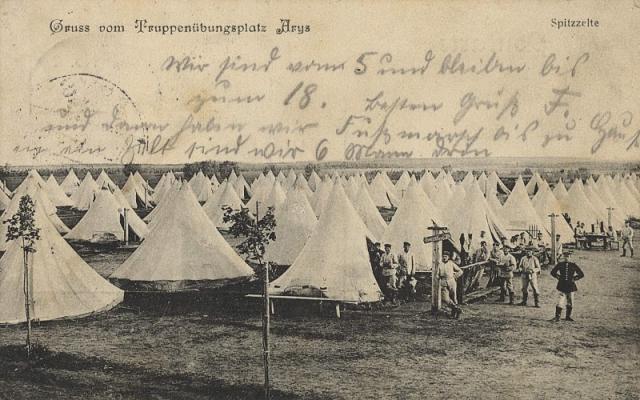 Gruss vom Truppenübungsplatz Arys
Spitzzelte
Wir sind vom 5 und bleiben bis
zum 18. Besten Gruß F.
und dann haben wir Fußmarsch bis zu Haus
in ein Zelt sind wir 6 Mann drin